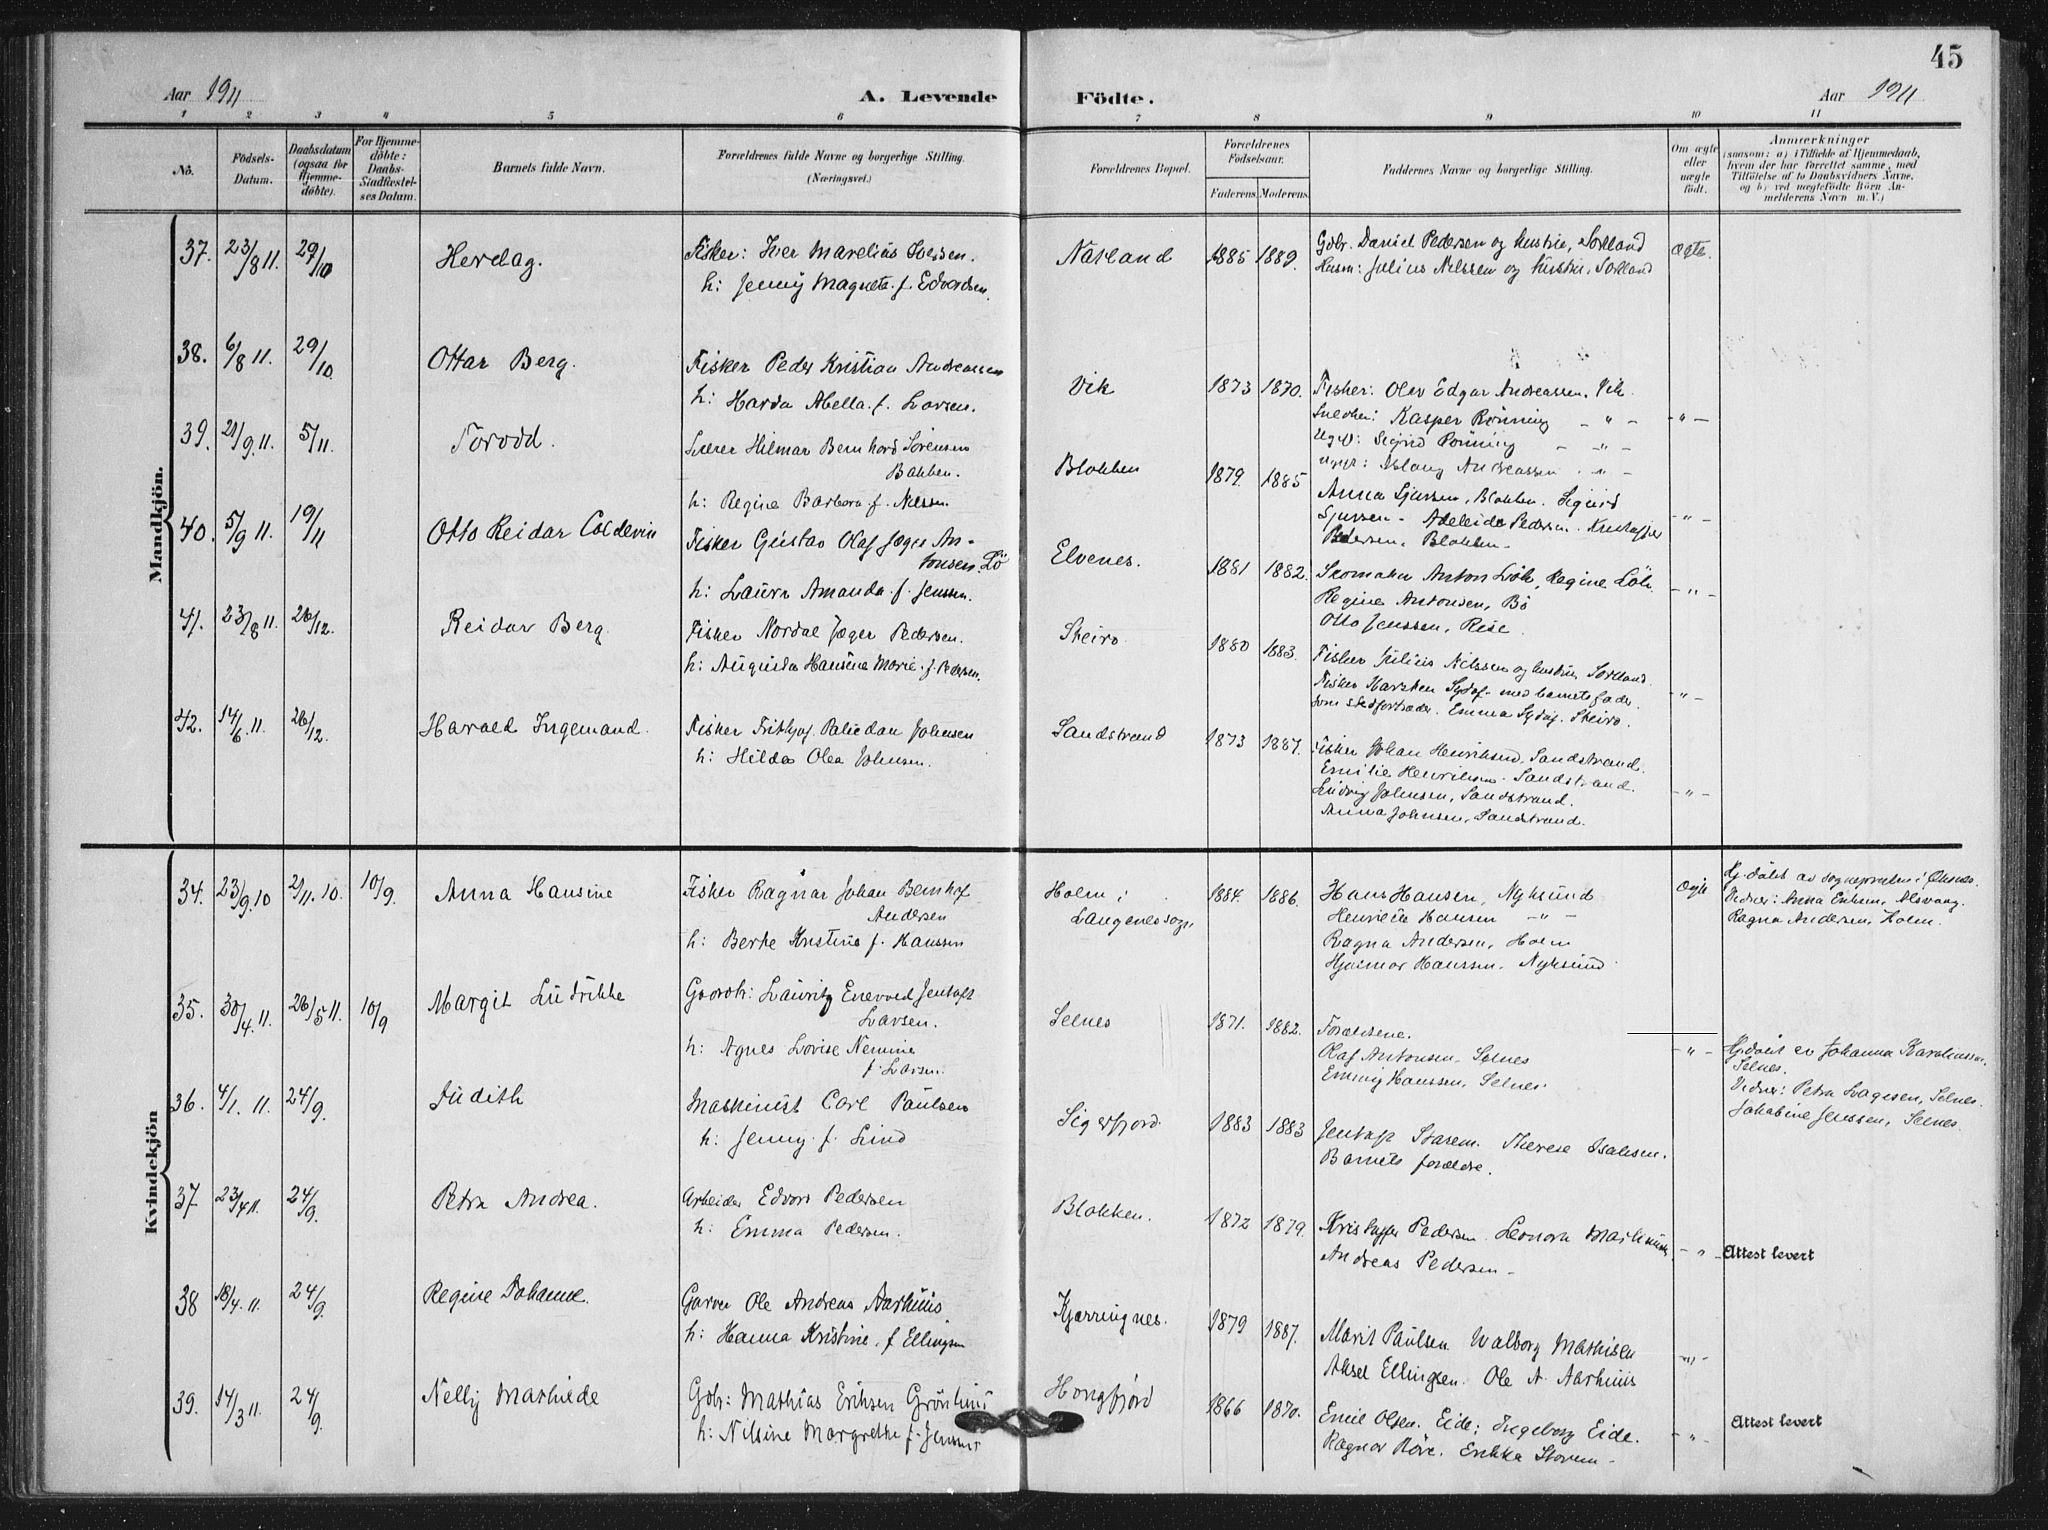 45
Aar 1911
A. Levende
Födte.
Aar 1911
1 2 3 4 5 6 7 8 9 10 11
No.
Födsels-
Datum.
Daabsdatum
(ogsaa for
Hjemme-
döbte).
For Hjemme-
döbte:
Daabs-
Stadfæstel-
ses Datum.
Barnets fulde Navn.
Forældrenes fulde Navne og borgerlige Stilling.
(Næringsvei.)
Forældrenes Bopæl.
Forældrenes
Födselsaar.
Faderens. Moderens.
Faddernes Navne og borgerlige Stilling.
Om ægte
eller
uægte
födt.
Anmærkninger
(saasom: a) i Tilfælde af Hjemmedaab,
hvem der har forrettet samme, med
Tilföielse af to Daabsvidners Navne,
og b) ved uægtefödte Börn An-
melderens Navn m. V.)
Mandkjön.
37. 23/8 11. 29/10 Herdag. Fisker: Iver Marelius
h: Jenny Magneta f. Edvardsen.
Natland 1885 1889.
Gbr. Daniel Pedersen og hustru, Sortland
Husm: Julius Nilssen og hustru, Sortland
ægte.
38. 6/8 11. 29/10. Ottar Berg. Fisker Peder Kristian Andreassen
h: Harda Abella f. Larsen.
Vik 1873 1870.
Fisker: Olav Edgar Andreassen, Vik
Snedker: Kasper Rönning - " -
Sigrid Rönning - " -
Aslaug Andreassen - " -
- " -
39. 21/9 11. 5/11. Torodd. Lærer Hilmar Bernhard Sörensen
Bakken.
h: Regine Barbara f. Nilssen
Blokken 1879. 1885
Anna Sjursen, Blokken. Sigurd
Sjursen - Adeleide Pedersen. Kristoffer
Pedersen, Blokken.
- " -
40. 5/9 11. 19/11 Otto Reidar Coldevin Fisker Gustav Olaf Jæger An-
tonsen Lö
h: Laura Amanda f. Jenssen.
Elvenes. 1881 1882.
Skomaker Anton Lök, Regine Lök.
Regine Antonsen, Bö
Otto Jenssen, Rise.
- " -
41. 23/8 11. 26/12. Reidar Berg. Fisker Nordal Jæger Pedersen.
h: Augusta Hansine Marie f. Pedersen.
Steiro 1880 1883.
Fisker Julius Nilssen og hustru, Sortland.
Fisker med barnets fader
som stedfortræder. Emma Steiro.
- " -
42. 14/6 11. 26/12 Harald Ingemand. Fisker Frithjof Paliedan Johnsen
h: Hilda Olea Johnsen.
Sandstrand 1873 1887.
Fisker Johan Henriksen, Sandstrand.
Emilie Henriksen. Sandstrand.
Ludvig Johnsen, Sandstrand.
Anna Johnsen, Sandstrand.
- " -
Kvindekjön
34. 23/9 10 2/11. 10. 10/9. Anna Hansine Fisker Ragnar Johan Bernhof
Andersen
h: Berte Kristine f. Hanssen
Holm i
Langenes sogn, 1884. 1886.
Hans Hansen, Nyksund
Henriette Hansen - " -
Ragna Andersen, Holm
Hjalmar Hanssen. Nyksund.
ægte
Hj. döbt av sogneprosten i Öksnes.
Vidner: Anna Eriksen, Alsvaag.
Ragna Andersen, Holm.
35. 30/4 11. 26/5 11. 10/9 Margit Ludrikke Gaardbr: Lauritz Enevold Jentoft
Larsen.
h: Agnes Lovise Nemine
f. Larsen.
Selnes 1871. 1882.
Forældrene.
Olaf Antonsen, Selnes
Emmy Hanssen, Selnes.
- " -
Hj. döbt av Johanna Karoliussen,
Selnes.
Vidner: Petra Selnes.
Jakobine Jenssen, Selnes.
36. 4/1. 11. 24/9. Judith Maskinist Carl Paulsen
h: Jenny f. Lind
Sigerfjord. 1883 1883
Jentoft Therese Isaksen.
Barnets forældre.
37 23/4 11. 24/9. Petra Andrea. Arbeider Edvart Pedersen
h: Emma Pedersen.
Blokken. 1872 1879.
Kristoffer Pedersen. Leonora
Andreas Pedersen -
- " -
Attest levert
38 18/4. 11. 24/9. Regine Johanne. Garver Ole Andreas Aarhuus
h: Hanna Kristine f. Ellingsen
Kjerringnes. 1879 1887.
Marit Paulsen. Walborg Mathisen
Aksel Ellingsen. Ole A. Aarhuus
- " -
39. 14/3 11. 24/9. Nelly Mathilde Gbr: Mathias Eriksen Grönlund
h: Nilsine Margrethe f. Jenssen
Hongfjord 1866 1870.
Emil Olsen. Eide; Ingeborg Eide.
Ragnar Röve. Erikka Storem -
- " -
Attest levert